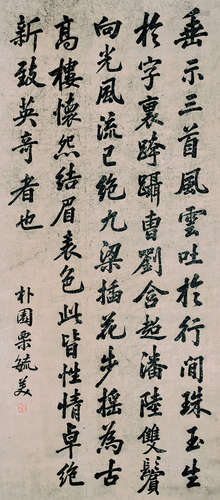 垂示三首風雲吐於行間珠玉生
於字裏跨躡曹劉含超潘陸雙鬢
向光風流已絕九梁插花步搖為古
高樓懷怨結眉表色此皆性情卓絕
新致英奇者也
朴園栗毓美